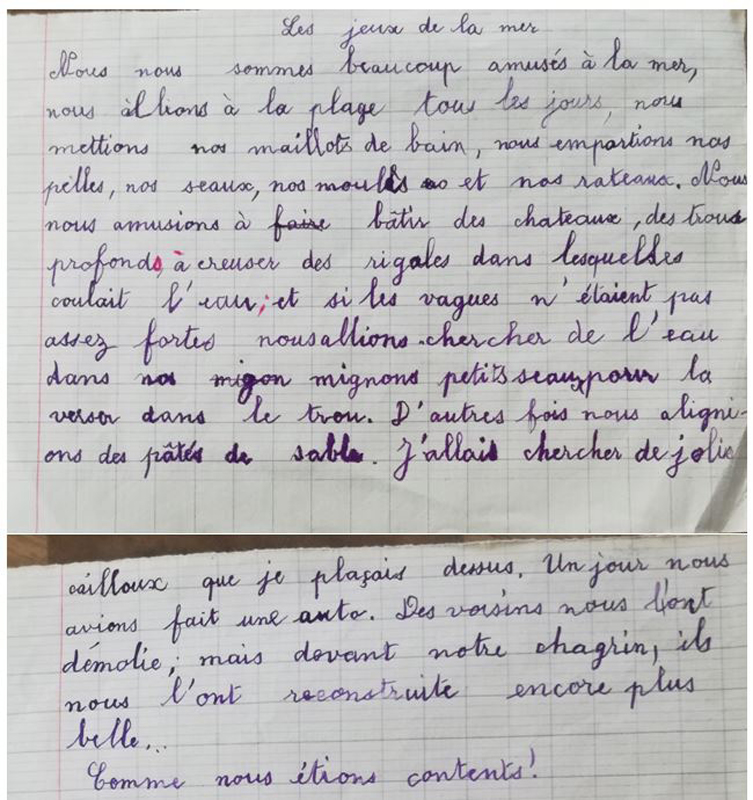 Les jeux de la mer
Nous nous sommes beaucoup amusés à la mer,
nous allions à la plage tous les jours, nous
mettions nos maillots de bain, nous emportions nos
pelles, nos seaux, nos moules et nos rateaux. Nous
nous amusions à faire bâtir des chateaux, des trous
profonds, à creuser des rigoles dans lesquelles
coulait l'eau; et si les vagues n'étaient pas
assez fortes nous allions chercher de l'eau
dans nos migon mignons petits seaux pour la
verser dans le trou. D'autres fois nous aligni-
ons des pâtés de sable. J'allais chercher de jolis
cailloux que je plaçais dessus. Un jour nous
avions fait une auto. Des voisins nous l'ont
démolie; mais devant notre chagrin, ils
nous l'ont reconstruite encore plus
belle...
Comme nous étions contents!